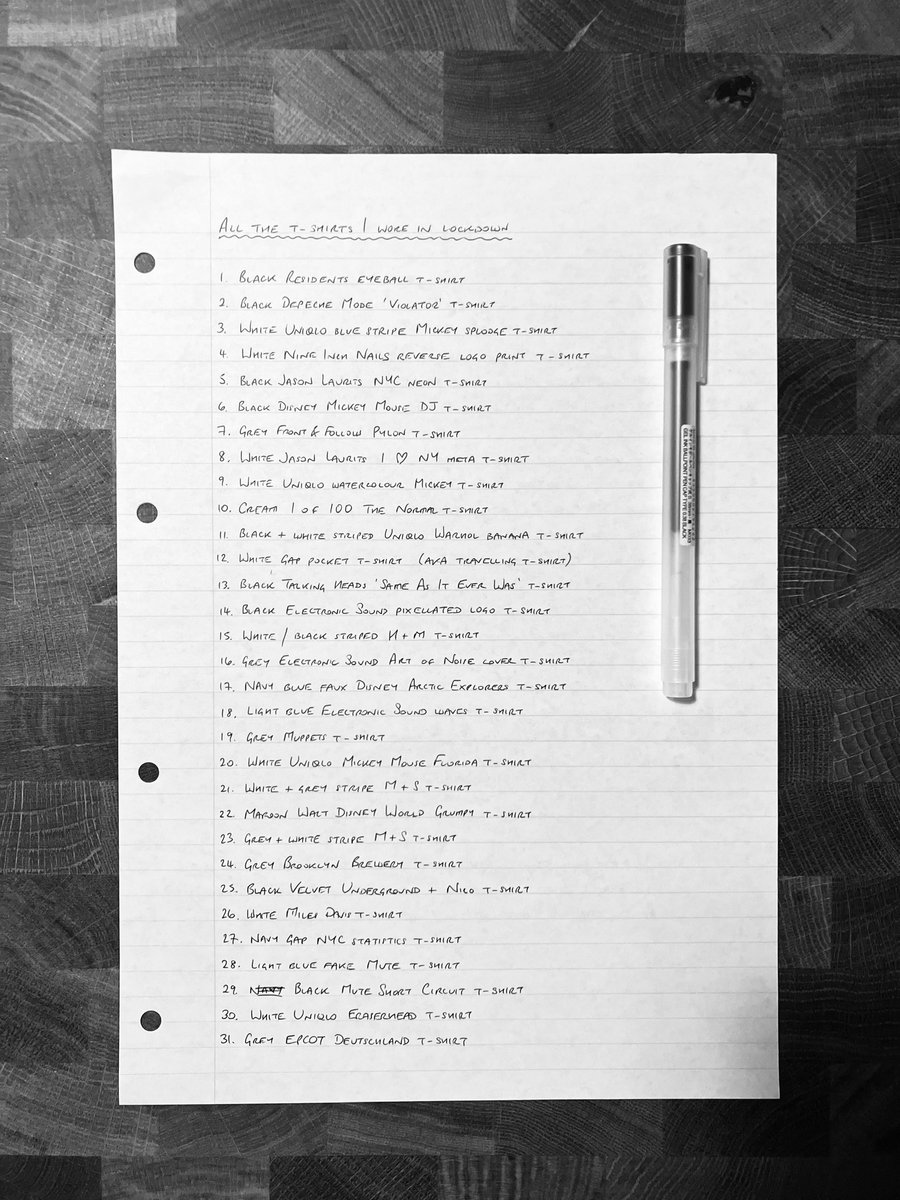 ALL THE T-SHIRTS I WORE IN LOCKDOWN
1. BLACK RESIDENTS EYEBALL T-SHIRT
2. BLACK DEPECHE MODE 'VIOLATOR' T-SHIRT
3. WHITE UNIQLO BLUE STRIPE MICKEY SPLODGE T-SHIRT
4. WHITE NINE INCH NAILS REVERSE LOGO PRINT T-SHIRT
5. BLACK JASON LAURITS NYC NEON T-SHIRT
6. BLACK DISNEY MICKEY MOUSE DJ T-SHIRT
7. GREY FRONT & FOLLOW PYLON T-SHIRT
8. WHITE JASON LAURITS I ♡ NY META T-SHIRT
9. WHITE UNIQLO WATERCOLOUR MICKEY T-SHIRT
10. CREAM 1 OF 100 THE NORMAL T-SHIRT
11. BLACK + WHITE STRIPED UNIQLO WARHOL BANANA T-SHIRT
12. WHITE GAP POCKET T-SHIRT (AKA TRAVELLING T-SHIRT)
13. BLACK TALKING HEADS 'SAME AS IT EVER WAS' T-SHIRT
14. BLACK ELECTRONIC SOUND PIXELLATED LOGO T-SHIRT
15. WHITE / BLACK STRIPED H+M T-SHIRT
16. GREY ELECTRONIC SOUND ART OF NOISE COVER T-SHIRT
17. NAVY BLUE FAUX DISNEY ARCTIC EXPLORERS T-SHIRT
18. LIGHT BLUE ELECTRONIC SOUND WAVES T-SHIRT
19. GREY MUPPETS T-SHIRT
20. WHITE UNIQLO MICKEY MOUSE FLORIDA T-SHIRT
21. WHITE + GREY STRIPE M+S T-SHIRT
22. MAROON WALT DISNEY WORLD GRUMPY T-SHIRT
23. GREY + WHITE STRIPE M+S T-SHIRT
24. GREY BROOKLYN BREWERY T-SHIRT
25. BLACK VELVET UNDERGROUND + NICO T-SHIRT
26. WHITE MILES DAVIS T-SHIRT
27. NAVY GAP NYC STATISTICS T-SHIRT
28. LIGHT BLUE FAKE MUTE T-SHIRT
29. BLACK MUTE SHORT CIRCUIT T-SHIRT
30. WHITE UNIQLO ERASERHEAD T-SHIRT
31. GREY EPCOT DEUTSCHLAND T-SHIRT
GEL INK BALLPOINT PEN CAP TYPE 0.38 BLACK